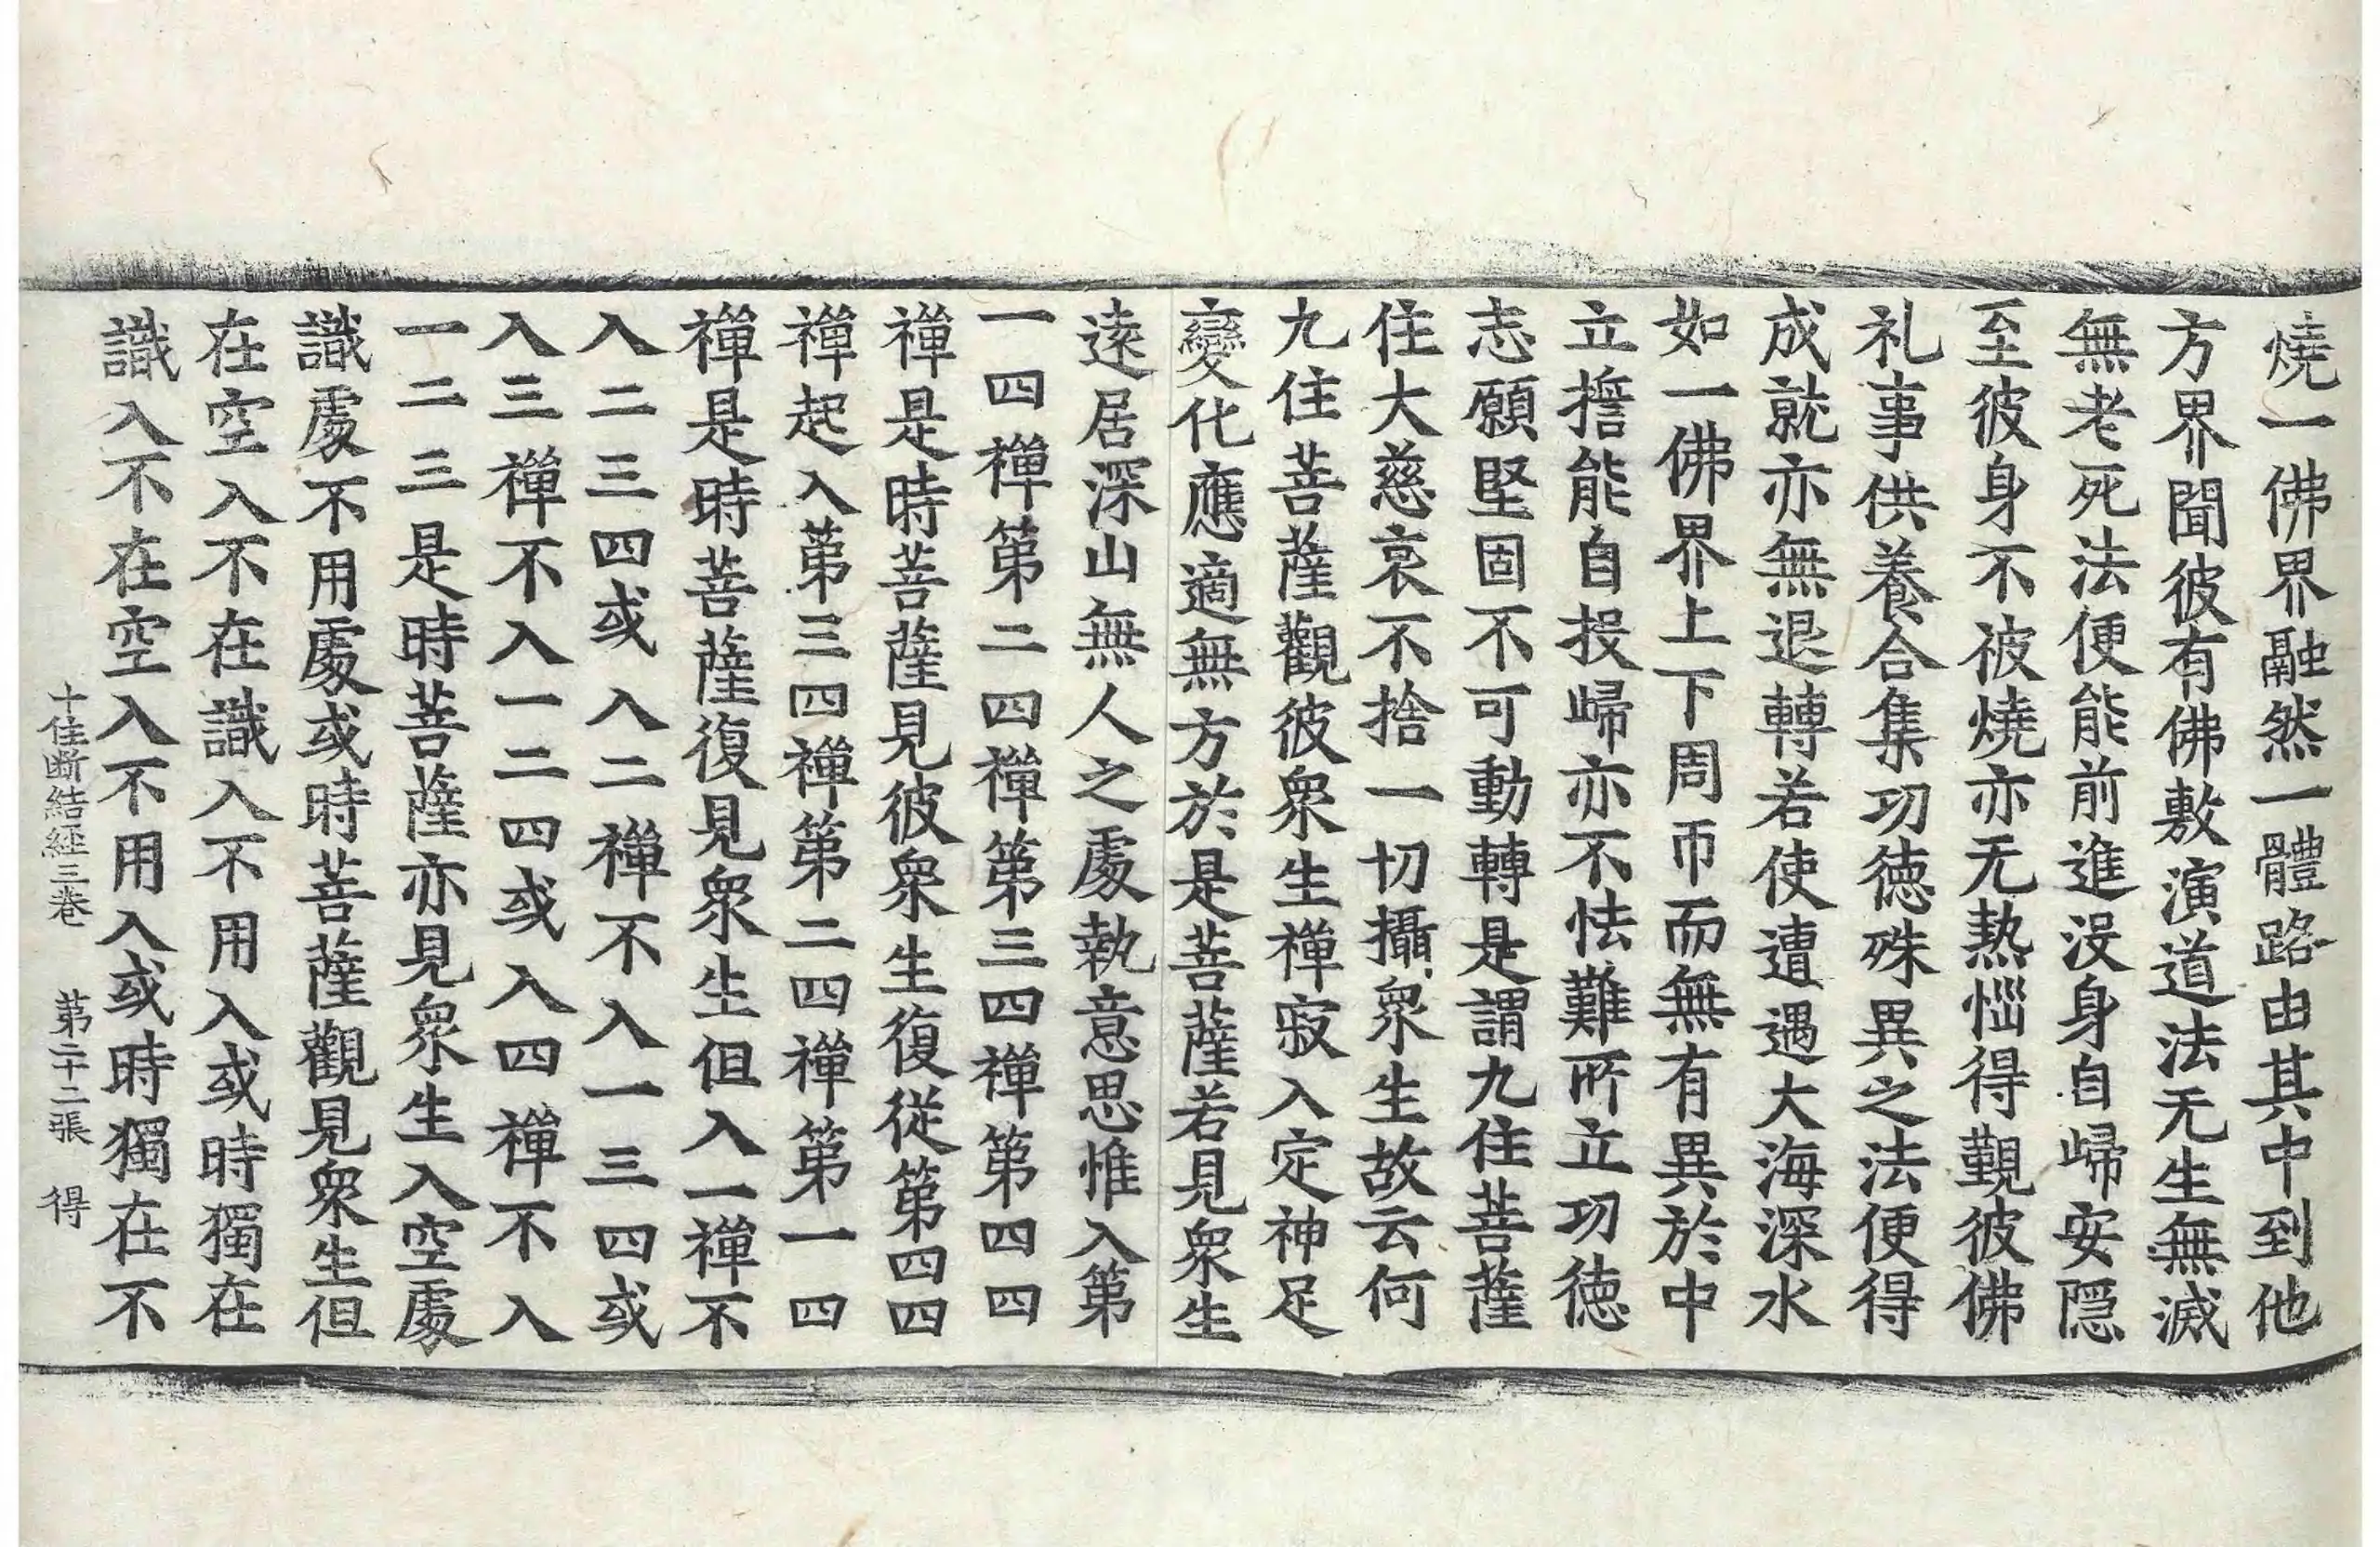 燒一佛界融然一體路由其中到他
方界聞彼有佛敷演道法无生無滅
無老死法便能前進没身自歸安隱
至彼身不被燒亦无熱惱得覲彼佛
礼事供養合集功徳殊異之法便得
成就亦無退轉若使遭遇大海深水
如一佛界上下周帀而無有異於中
立擔能自投歸亦不怯難所立功徳
志願堅固不可動轉是謂九住菩薩
住大慈哀不捨一切攝衆生故云何
九住菩薩觀彼衆生禪寂入定神足
變化應適無方於是菩薩若見衆生
遠居深山無人之處執意思惟入第
一四禪第二四禪第三四禪第四四
禪是時菩薩見彼衆生復從第四四
禪起入第三四禪第二四禪第一四
禪是時菩薩復見衆生但入一禪不
入二三四或入二禪不入一三四或
入三禪不入一二四或入四禪不入
一二三是時菩薩亦見衆生入空處
識處不用處或時菩薩觀見衆生但
在空入不在識入不用入或時獨在
識入不在空入不用入或時獨在不
十住断結經三卷　第二十二張　得